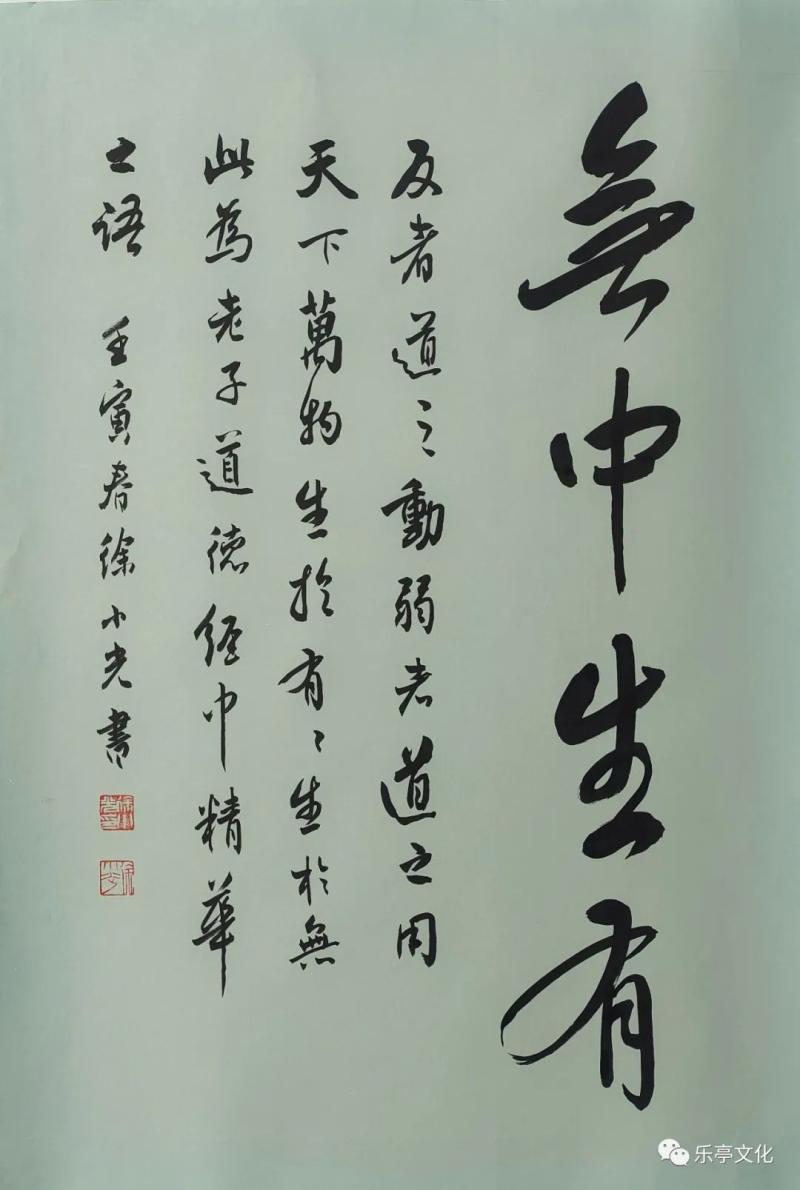 無中生有
反者道之動弱者道之用
天下萬物生於有〻生於無
此為老子道德經中精華
之語 壬寅春徐小光書
乐亭文化